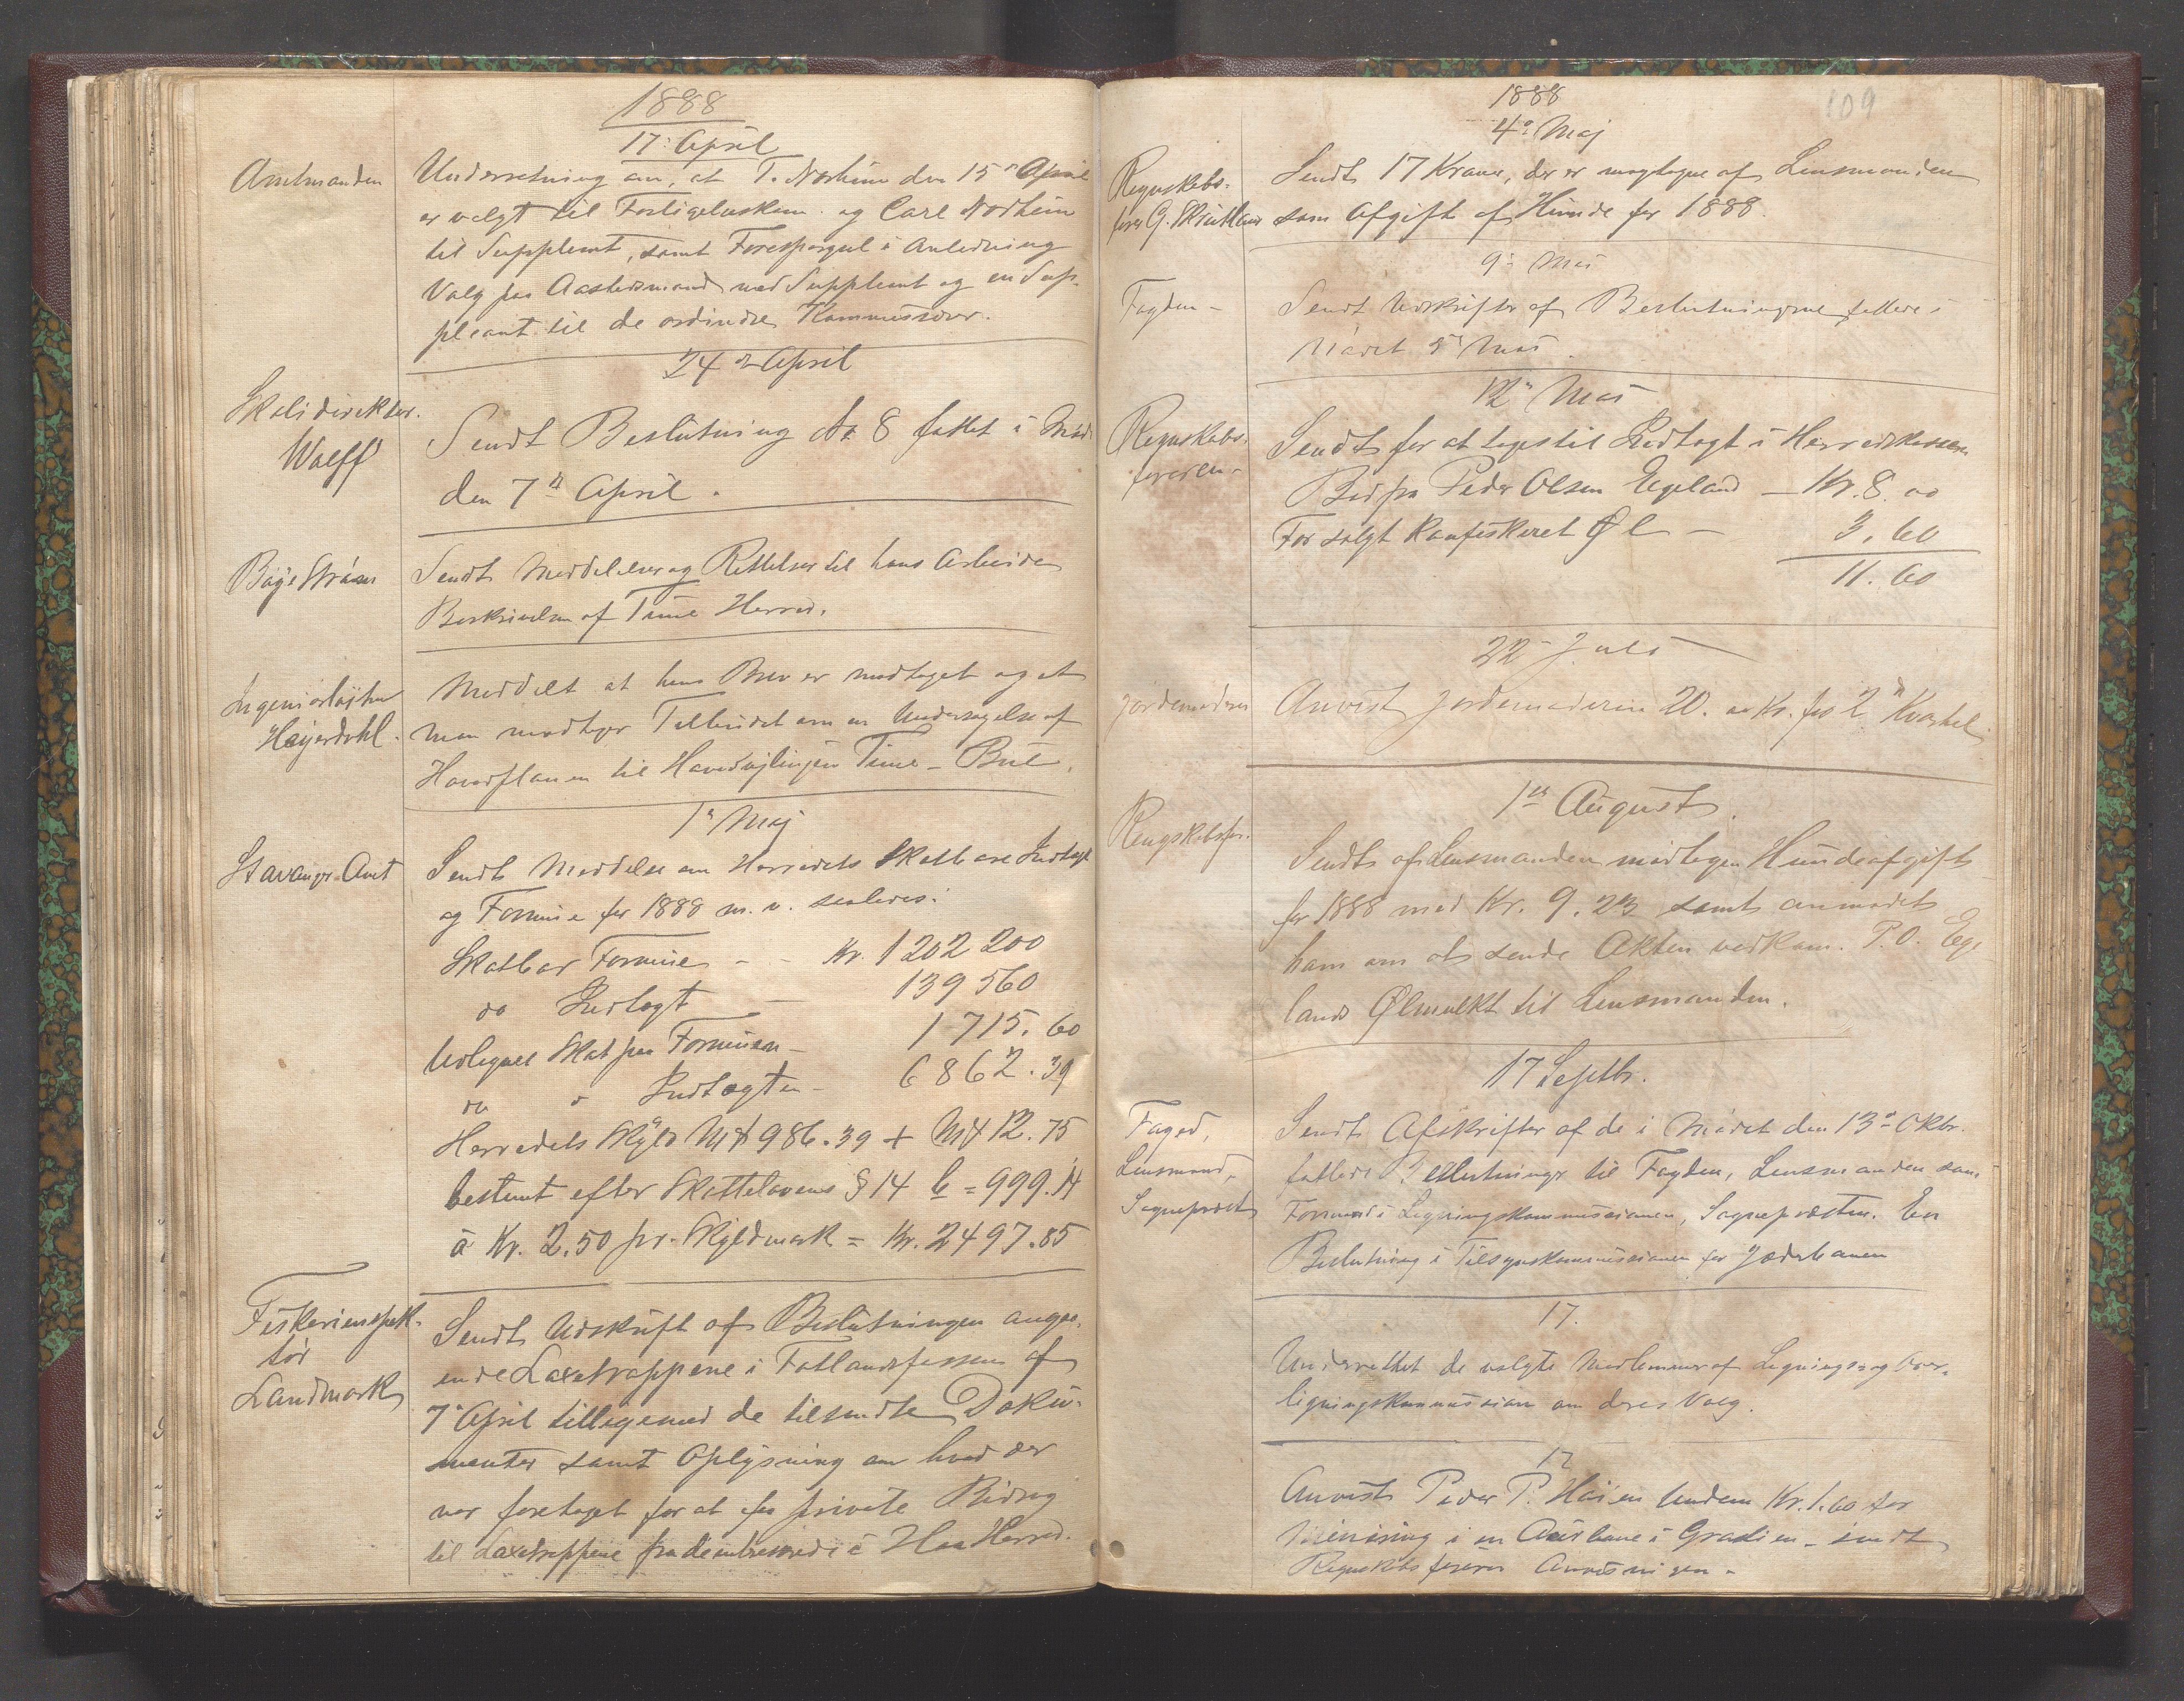 1888
17de April
Amtmanden
Underretning om, at T. Norheim den 15de April
er valgt til Forligelseskom. og Carl Nordheim
til Supplent, samt Forespørgsel i Anledning
Valg paa Aastedsmænd med Supplent og en Sup-
pleant til de ordinære Kommissioner.
24de April
Skoledirektør
Wolff
Sendt Beslutning No 8 fattet i Møde
den 7de April.
Boye Strøm
Sendt Meddelelser og Rettelser til hans Arbeide
Beskrivelse af Time Herred.
Ingeniørløitn
Heyerdahl.
Meddelt at hans Brev er modtaget og at
man modtager Tilbudet om en Undersøgelse af
Hovedplanen til Hovedvejlinjen Time - Bue.
1de Maj
Stavanger Amt
Sendt Meddelelse om Herredets Skatbare Indtægt
og Formue for 1888 m. v. saaledes:
Skatbar Formue - - Kr. 1 202 200
do Indtægt - 139 560
Udlignet Skat paa Formuen - 1 715. 60
do " Indtægten - 6 862. 39
Herredets Skyld M# 986.39 + M# 12.75
bestemt efter Skattelovens § 14 b = 999.14
à Kr. 2.50 pr. Skyldmark = Kr. 2497.85
Fiskeriinspek-
tør
Landmark
Sendt Udskrift af Beslutningen angaa-
ende Laxetrappene i Fotlandsfossen af
7de April tilligemed de tilsendte Doku-
menter samt Oplysning om hvad der
var foretaget for at faa private Bidrag
til Laxetrappene fra de interesserede i Haa Herred.
109
1888
4de Maj
Regnskabs-
fører G. Skrutland
Sendt 17 Kroner, der er modtagne af Lensmanden
som Afgift af Hunde for 1888.
9de Mai
Fogden -
Sendt Udskrifter af Beslutningerne fattede i
Mødet 5te Mai.
12te Mai
Regnskabs-
føreren -
Sendt for at tages til Indtægt i Herredskassen
Bod fra Peder Olsen Egeland - Kr. 8. 00
For solgt konfiskeret Øl - 3. 60
11. 60
22 - Juli
Jordemoderen
Anvist Jordemoderen 20. 00 Kr. for 2det Kvartal.
1ste August.
Regnskabsfør.
Sendt af Lensmanden modtagen Hundeafgift
for 1888 med Kr. 9. 23 samt anmodet
ham om at sende Akten vedkom. P. O. Ege-
lands Ølmulkt til Lensmanden.
17 Septbr.
Foged,
Lensmand,
Sognepræst
Sendt Afskrifter af de i Mødet den 13de Oktbr.
fattede Beslutninger til Fogden, Lensmanden som
Formand i Ligningskommissionen, Sognepræsten. En
Beslutning i Tilsynskommissionen for Jæderbanen
17.
Underrettet de valgte Medlemmer af Lignings- og Over-
ligningskommission om deres Valg.
17
Anvist Peder P. Høien Undem Kr. 1. 60 for
i en i Gradien - sendt
Regnskabsføreren Anvisningen -